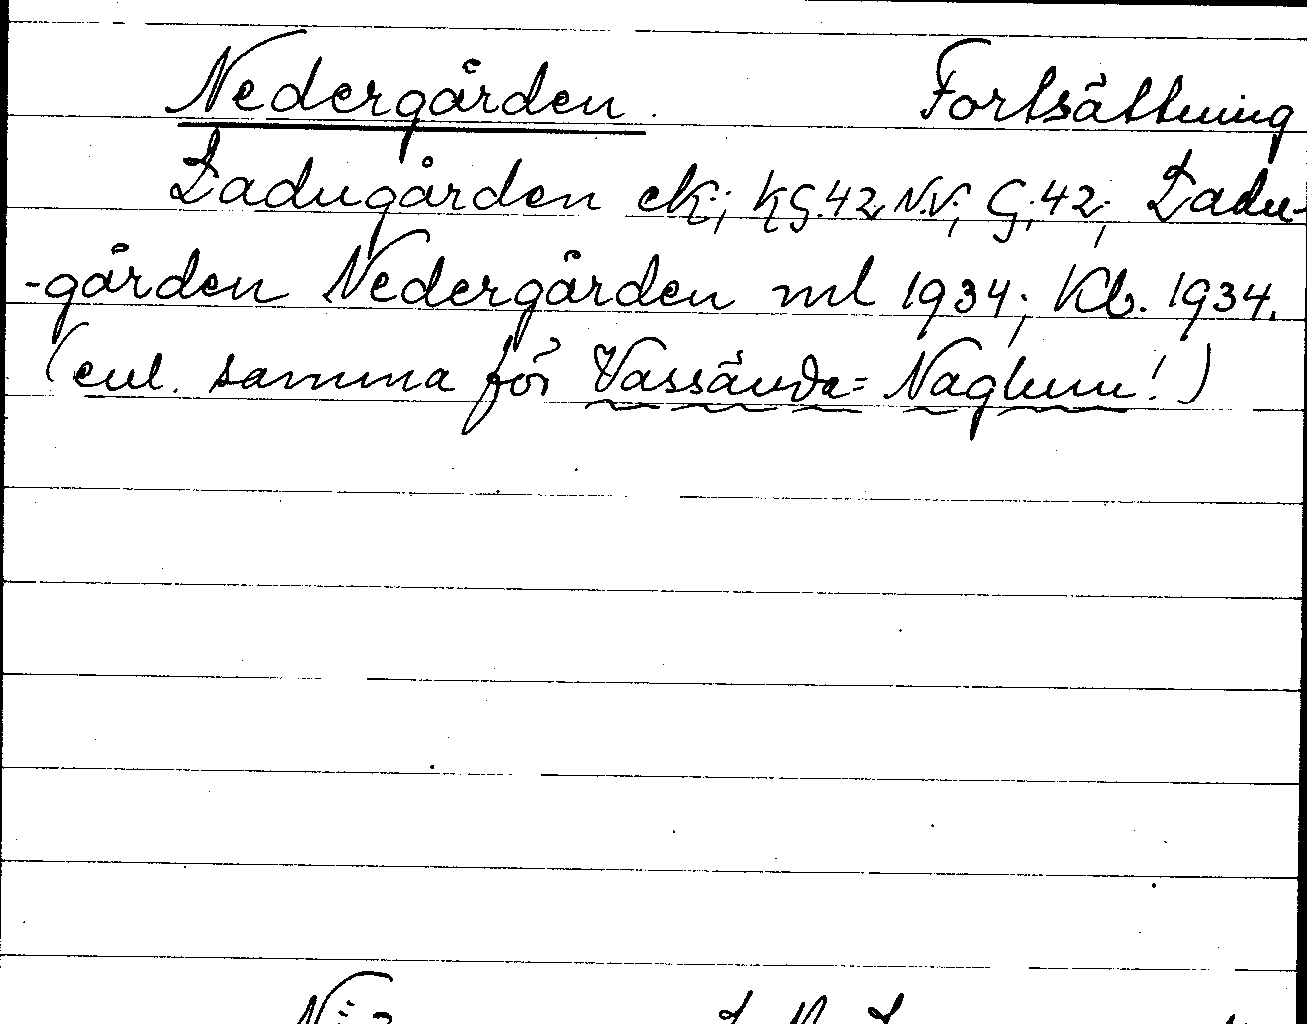 Nedergården. Fortsättning
Ladugården ek.; KG.42 N.V.; G.;42; Ladu-
-gården Nedergården ml 1934; Kb. 1934.
(enl. samma för Vassända= Naglum!)